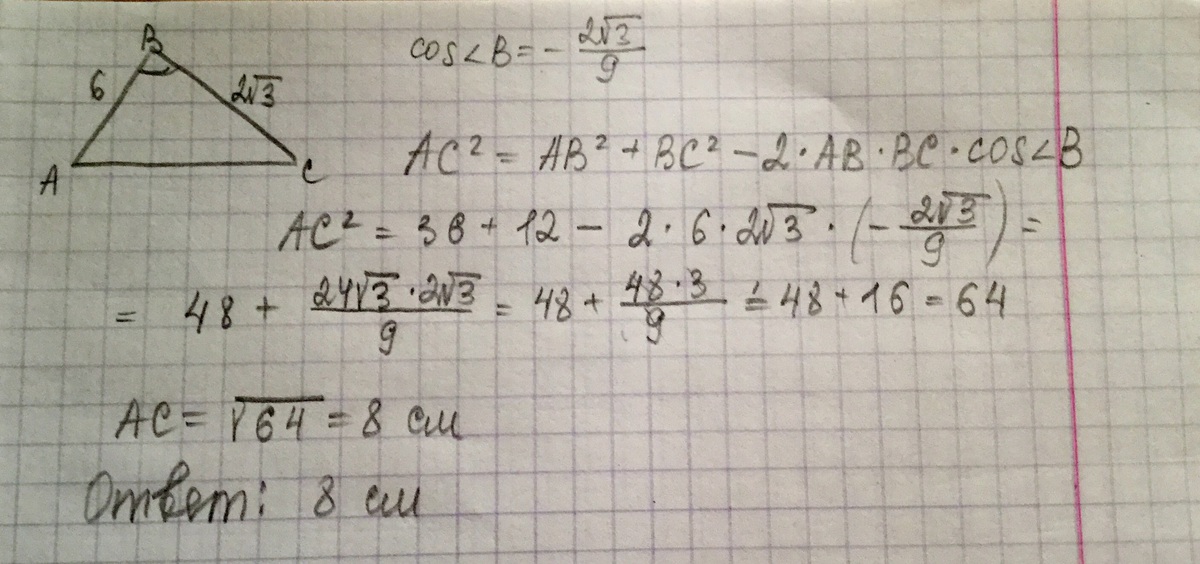 B
6
2√3
A
C
cos∠B = - 2√3/9
AC² = AB² + BC² - 2·AB·BC·cos∠B
AC² = 36 + 12 - 2·6·2√3·(-2√3/9) =
= 48 + 24√3·2√3/9 = 48 + 48·3/9 = 48 + 16 = 64
AC = √64 = 8 см
Ответ: 8 см